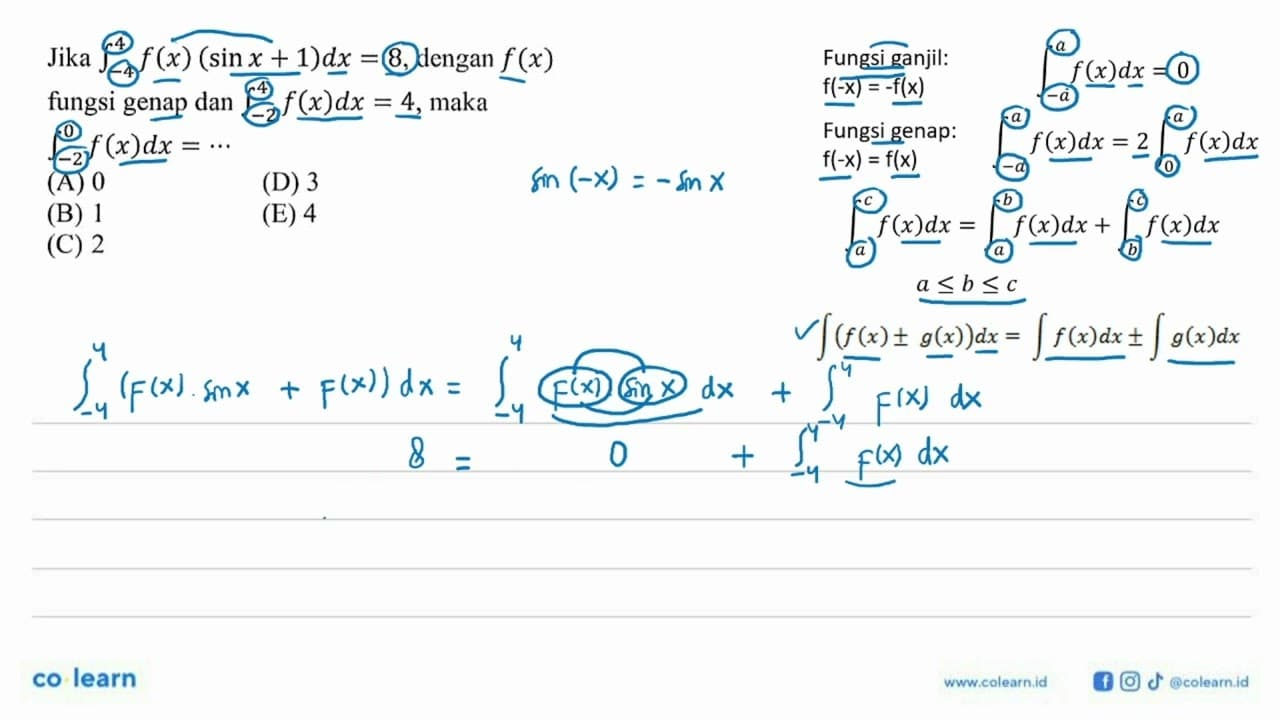 Jika ∫_{-4}^{4} f(x) (sin x + 1)dx = 8, dengan f(x)
fungsi genap dan ∫_{-2}^{4} f(x)dx = 4, maka
∫_{-2}^{0} f(x)dx = ⋯
(A) 0 (D) 3
(B) 1 (E) 4
(C) 2
Fungsi ganjil:
f(-x) = -f(x)
∫_{-a}^{a} f(x)dx = 0
Fungsi genap:
f(-x) = f(x)
∫_{-a}^{a} f(x)dx = 2 ∫_{0}^{a} f(x)dx
∫_{a}^{c} f(x)dx = ∫_{a}^{b} f(x)dx + ∫_{b}^{c} f(x)dx
a ≤ b ≤ c
∫(f(x) ± g(x))dx = ∫ f(x)dx ± ∫ g(x)dx
sin (-x) = - sin x
∫_{-4}^{4} (F(x) . sin x + F(x)) dx = ∫_{-4}^{4} F(x) sin x dx + ∫_{-4}^{4} F(x) dx
8 = 0 + ∫_{-4}^{4} F(x) dx
co learn
www.colearn.id
@colearn.id